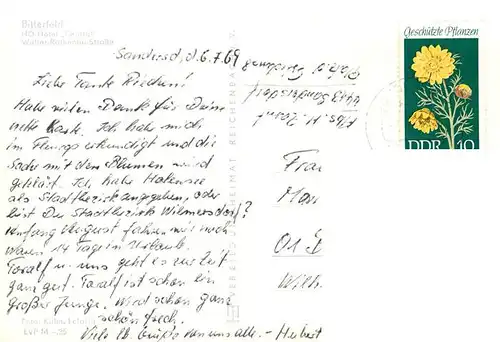 Bitterfeld
HO-Hotel „Central“
Walter-Rathenau-Straße
Sandersd., d. 6.7.69
Liebe Tante Riechen!
Habe vielen Dank für Deine
nette Karte. Ich habe mich
im Flungs erkundigt und die
Sache mit den Blumen wird
geklärt. Ich habe Halensee
als Stadtbezirk angegeben, oder
bist Du Stadtbezirk Wilmersdorf?
Anfang August fahren wir noch
14 Tage in Urlaub.
Toralf u. uns geht es zur Zeit
ganz gut. Toralf ist schon ein
großer Junge. Wird schon ganz
schön frech.
Viele lb. Grüße von uns alle. - Herbert
4413 Sandersdorf
VERLAG HEIMAT REICHENBACH
Geschützte Pflanzen
DDR 10
Frau